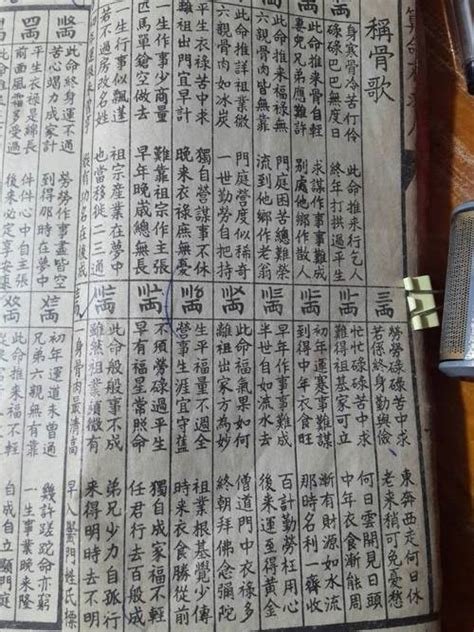 稱骨歌
身寒骨冷苦伶仃 此命推來行乞人
碌碌巴巴無度日 終年打拱過平生
此命推來骨自輕 求謀作事事難成
妻兒兄弟應難許 別處他鄉作散人
此命推來福祿無 門庭困苦總難榮
六親骨肉皆無靠 流到他鄉作老翁
此命推詳祖業微 門庭營度似稀奇
六親骨肉如冰炭 一世勤勞自把持
平生衣祿苦中求 獨自營謀事不休
離祖出門宜早計 晚來衣祿庶無憂
一生作事少商量 難靠祖宗作主張
匹馬單槍空做去 早年晚歲總無長
一生行事似飄蓬 祖宗產業在夢中
若不過房改名姓 也當移徙二三通
縱有功名在後成
此命終身運不通 勞勞作事盡皆空
苦心竭力成家計 到得那時在夢中
平生衣祿是綿長 件件心中自主張
前面風霜多受過 後來必定享安康
勞勞碌碌苦中求 東奔西走何日休
若係終身勤與儉 老來稍可免憂愁
忙忙碌碌苦中求 何日雲開見日頭
難得祖基家可立 中年衣食漸能周
初年運蹇事難謀 漸有財源如水流
到得中年衣食旺 那時名利一齊收
早年作事事難成 百計勤勞枉用心
半世自如流水去 後來運至得黃金
此命福氣果如何 僧道門中衣祿多
離祖出家方為妙 終朝拜佛念彌陀
生平福量不週全 祖業根基覺少傳
營事生涯宜守舊 時來衣食勝從前
不須勞碌過平生 獨自成家福不輕
早有福星常照命 任君行去百般成
此命般般事不成 弟兄少力自孤行
雖然祖業須微有 來得明時去不明
一身骨肉最清高 早入黌門姓氏標
初年運道未曾通 幾許蹉跎命亦窮
兄弟六親無有靠 一生事業晚來隆
此命推來福不輕 自成自立顯門庭